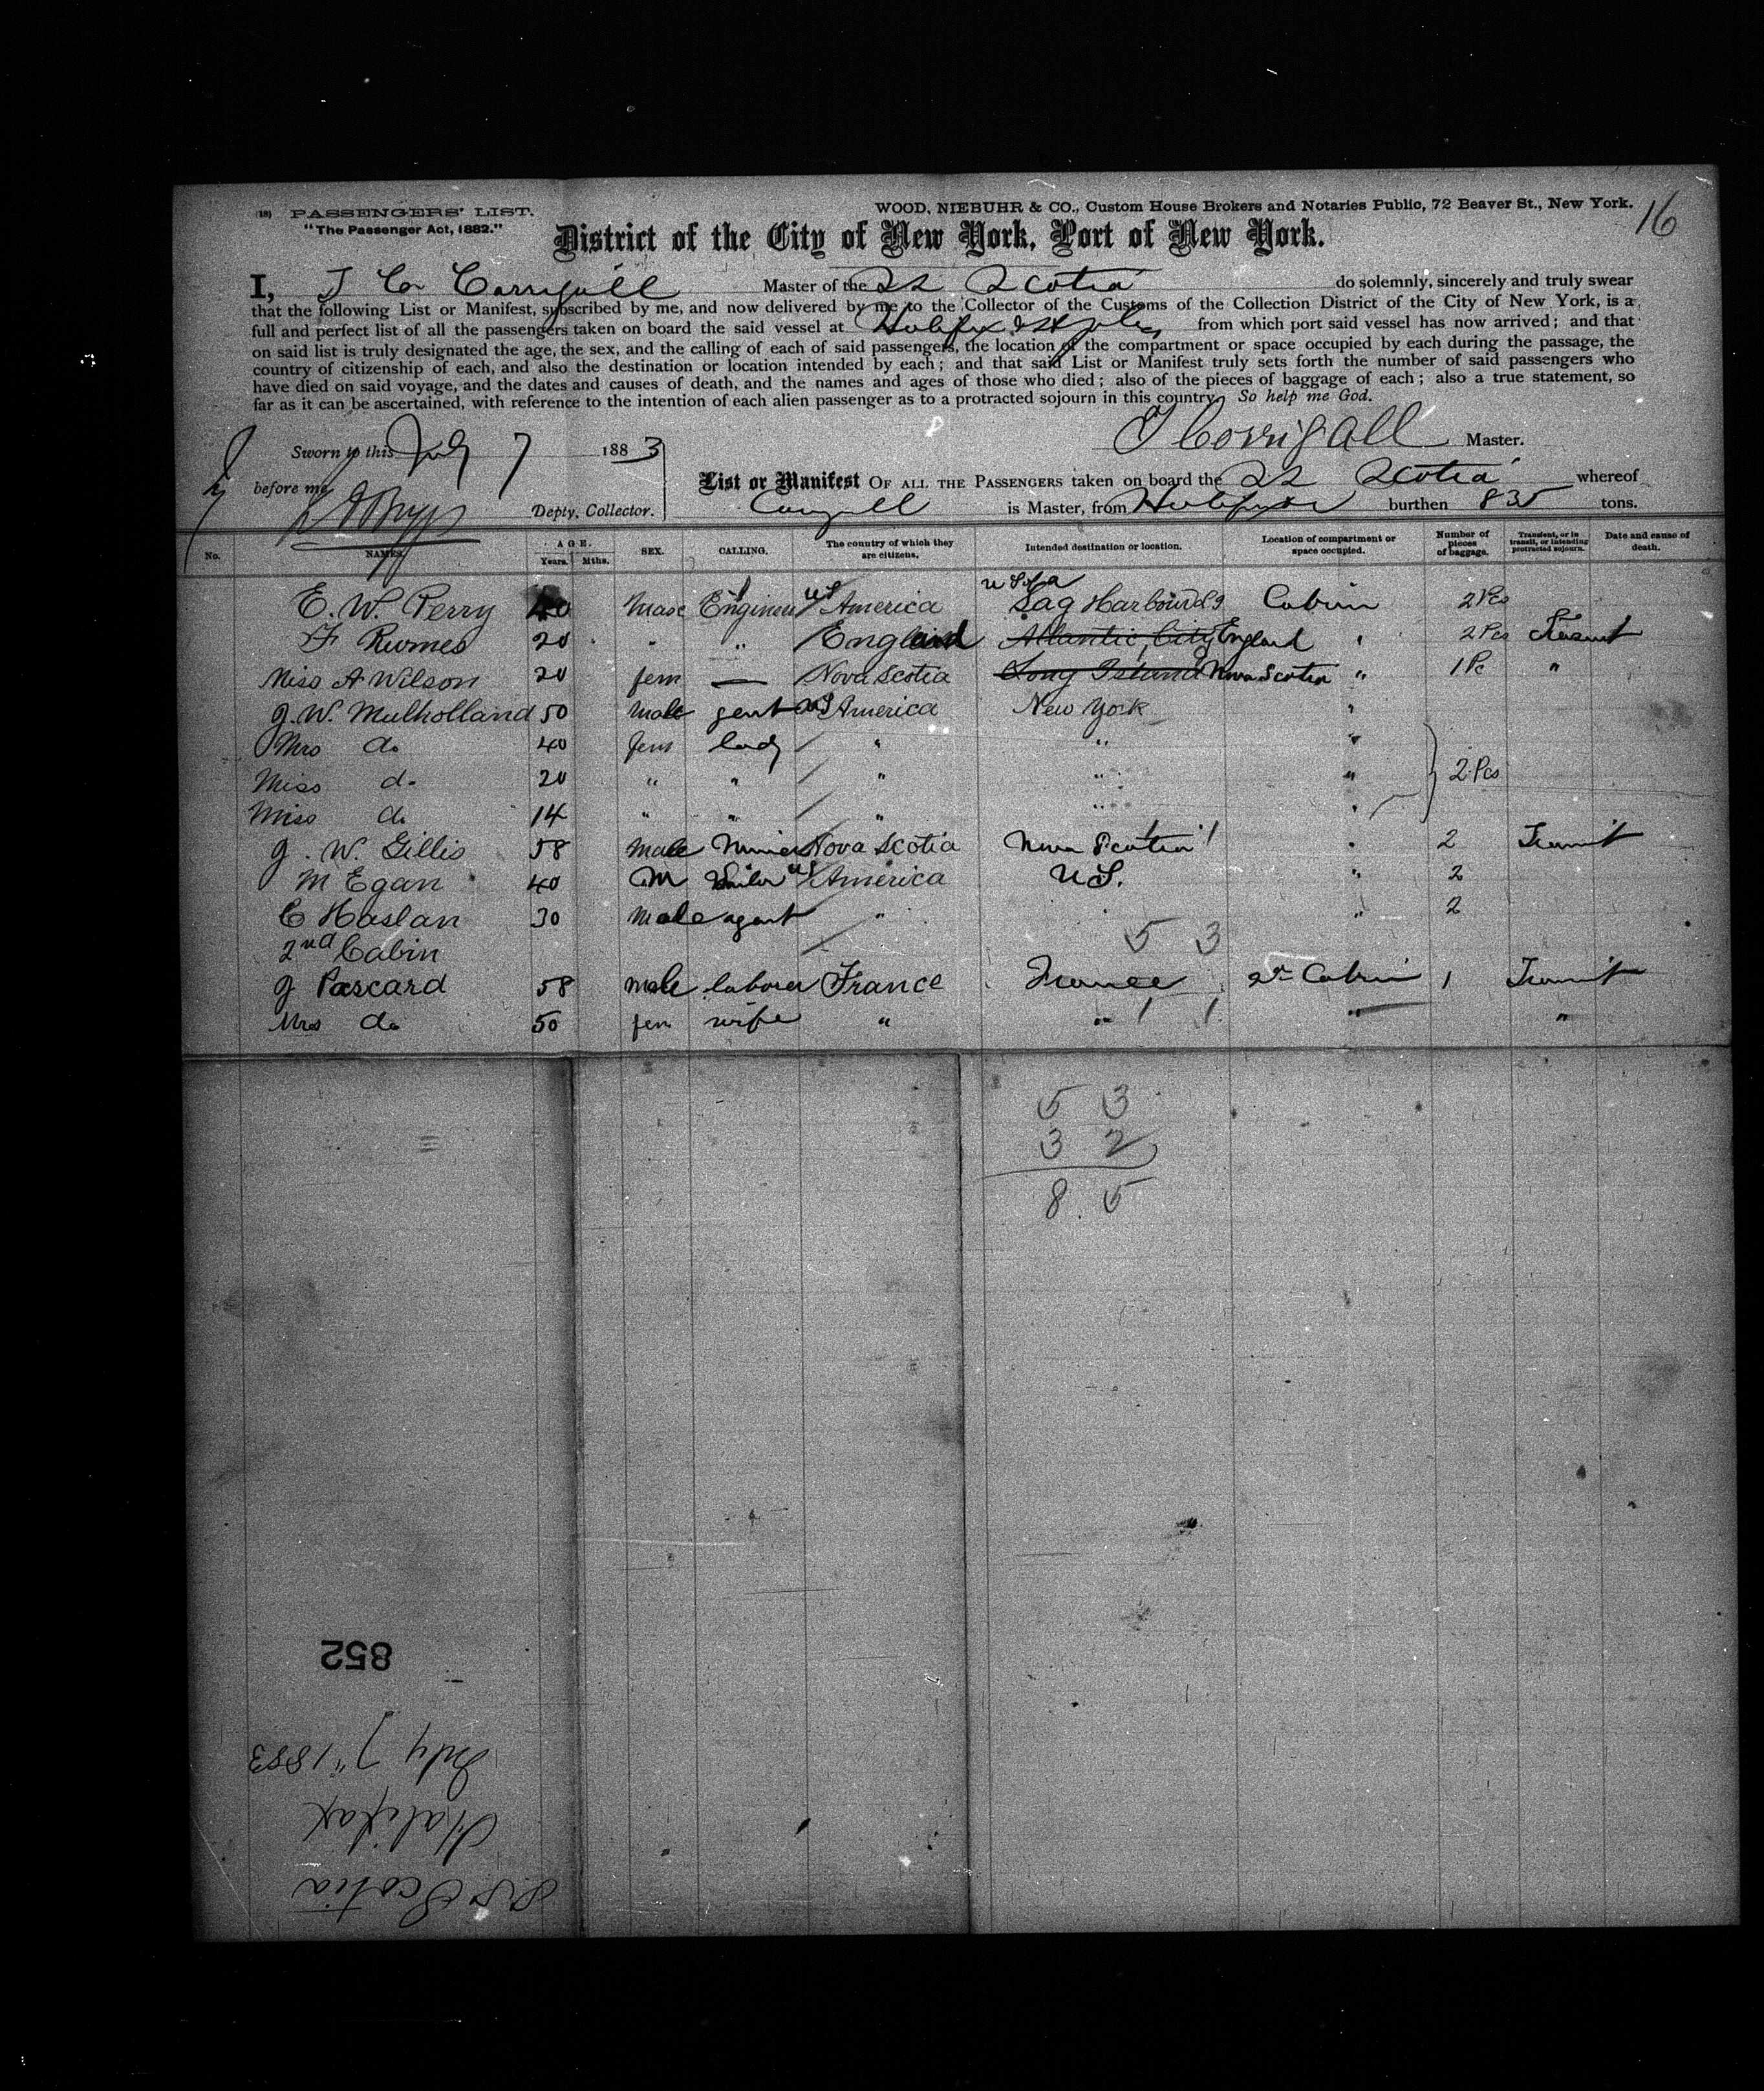 (18) PASSENGERS' LIST.
"The Passenger Act, 1882."
WOOD, NIEBUHR & CO., Custom House Brokers and Notaries Public, 72 Beaver St., New York.
16
District of the City of New York, Port of New York.
I, Master of the SS Scotia do solemnly, sincerely and truly swear
that the following List or Manifest, subscribed by me, and now delivered by me to the Collector of the Customs of the Collection District of the City of New York, is a
full and perfect list of all the passengers taken on board the said vessel at Halifax & St Johns from which port said vessel has now arrived; and that
on said list is truly designated the age, the sex, and the calling of each of said passengers, the location of the compartment or space occupied by each during the passage, the
country of citizenship of each, and also the destination or location intended by each; and that said List or Manifest truly sets forth the number of said passengers who
have died on said voyage, and the dates and causes of death, and the names and ages of those who died; also of the pieces of baggage of each; also a true statement, so
far as it can be ascertained, with reference to the intention of each alien passenger as to a protracted sojourn in this country. So help me God.
Corrigall Master.
Sworn to this July 7 1883
before me
Depty. Collector.
List or Manifest OF ALL THE PASSENGERS taken on board the SS Scotia whereof
is Master, from Halifax burthen 835 tons.
No. NAMES. AGE. Years. Mths. SEX. CALLING. The country of which they are citizens. Intended destination or location. Location of compartment or space occupied. Number of pieces of baggage. Transient, or in transit, or intending protracted sojourn. Date and cause of death.
E. W. Perry 40 Masc Engineer US America USA Sag Harbour Cabin 2 Pcs
F 20 " " England Atlantic City England " 2 Pcs Transit
Miss A Wilson 20 fem — Nova Scotia Long Island Nova Scotia " 1 Pc "
J. W. Mulholland 50 Male gent US America New York "
Mrs do 40 fem lady " " "
Miss do 20 " " " " " 2 Pcs
Miss do 14 " " " " "
J. W. Gillis 58 Male Miner Nova Scotia Nova Scotia " 2 Transit
M Egan 40 M Sailor US America U.S. " 2
C Haslan 30 Male agent " " " 2
2nd Cabin 5 3
J Pascard 58 Male laborer France France 2nd Cabin 1 Transit
Mrs do 50 fem wife " " " "
5 3
3 2
8 5
852
July 7" 1883
Halifax
S.S Scotia